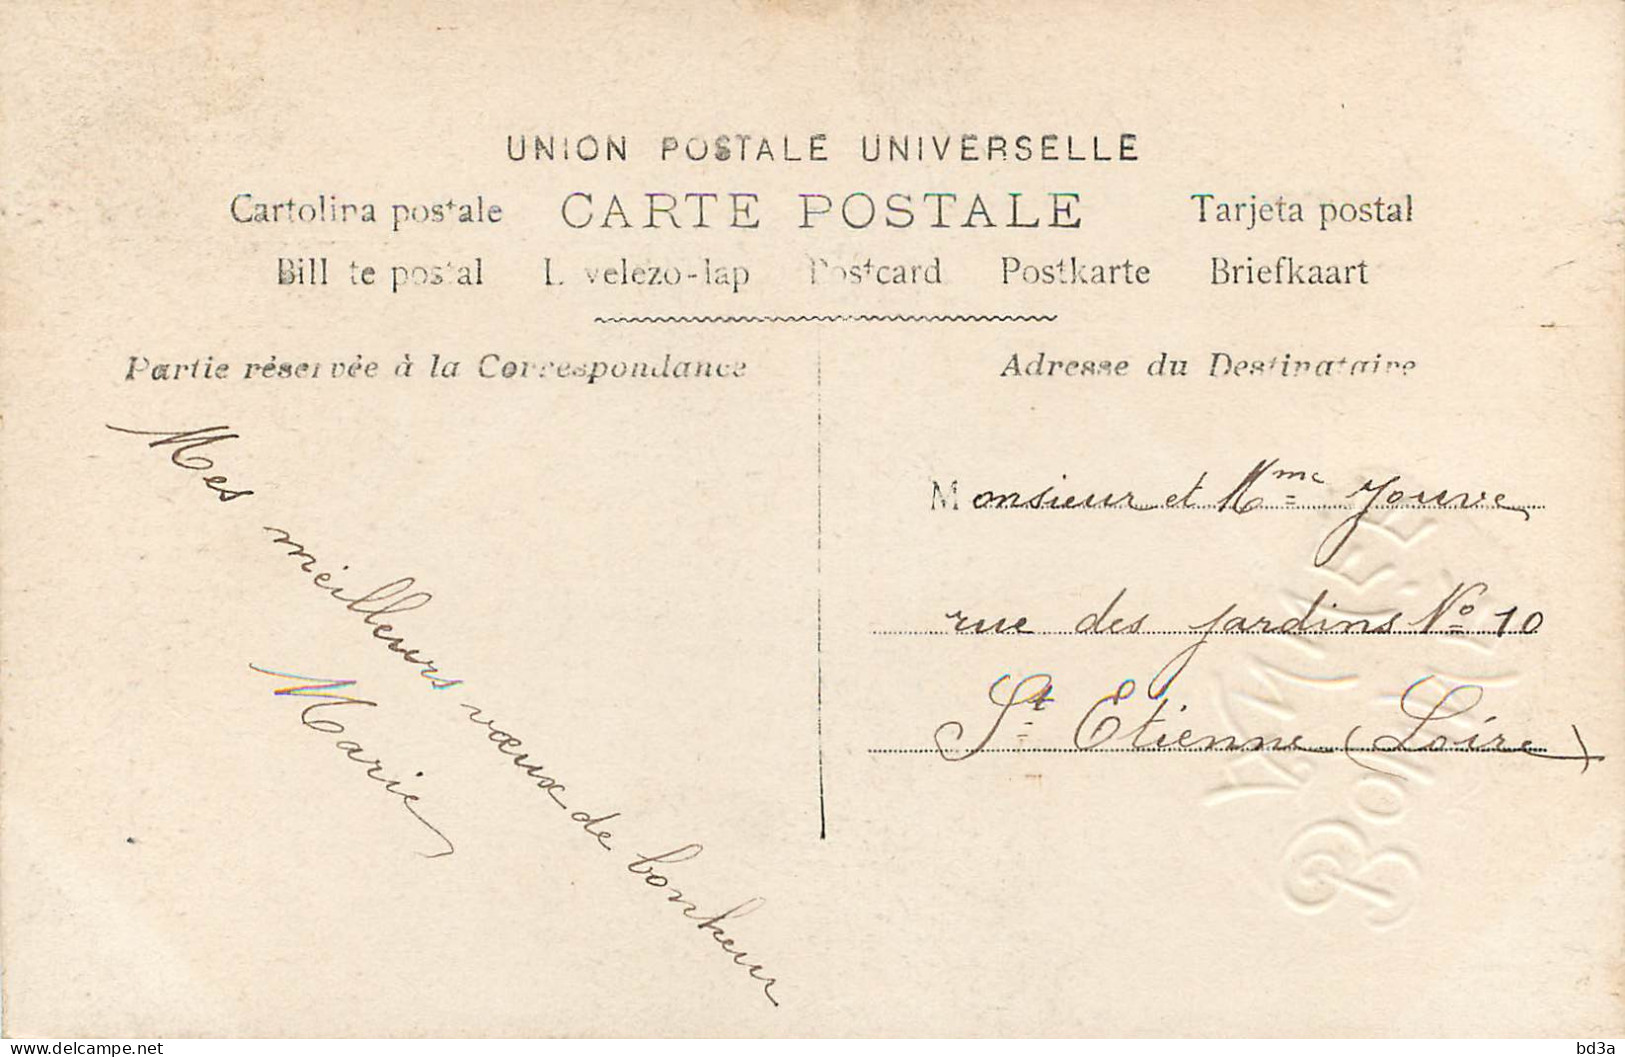 UNION POSTALE UNIVERSELLE
Cartolina postale CARTE POSTALE Tarjeta postal
Billete postal Levelezo-lap Postcard Postkarte Briefkaart
Partie réservée à la Correspondance
Adresse du Destinataire
Mes meilleurs vœux de bonheur
Marie
Monsieur et Mme Jouve
rue des jardins No 10
St Etienne (Loire)
ANNÉE
BONNE
delcampe.net
bd3a